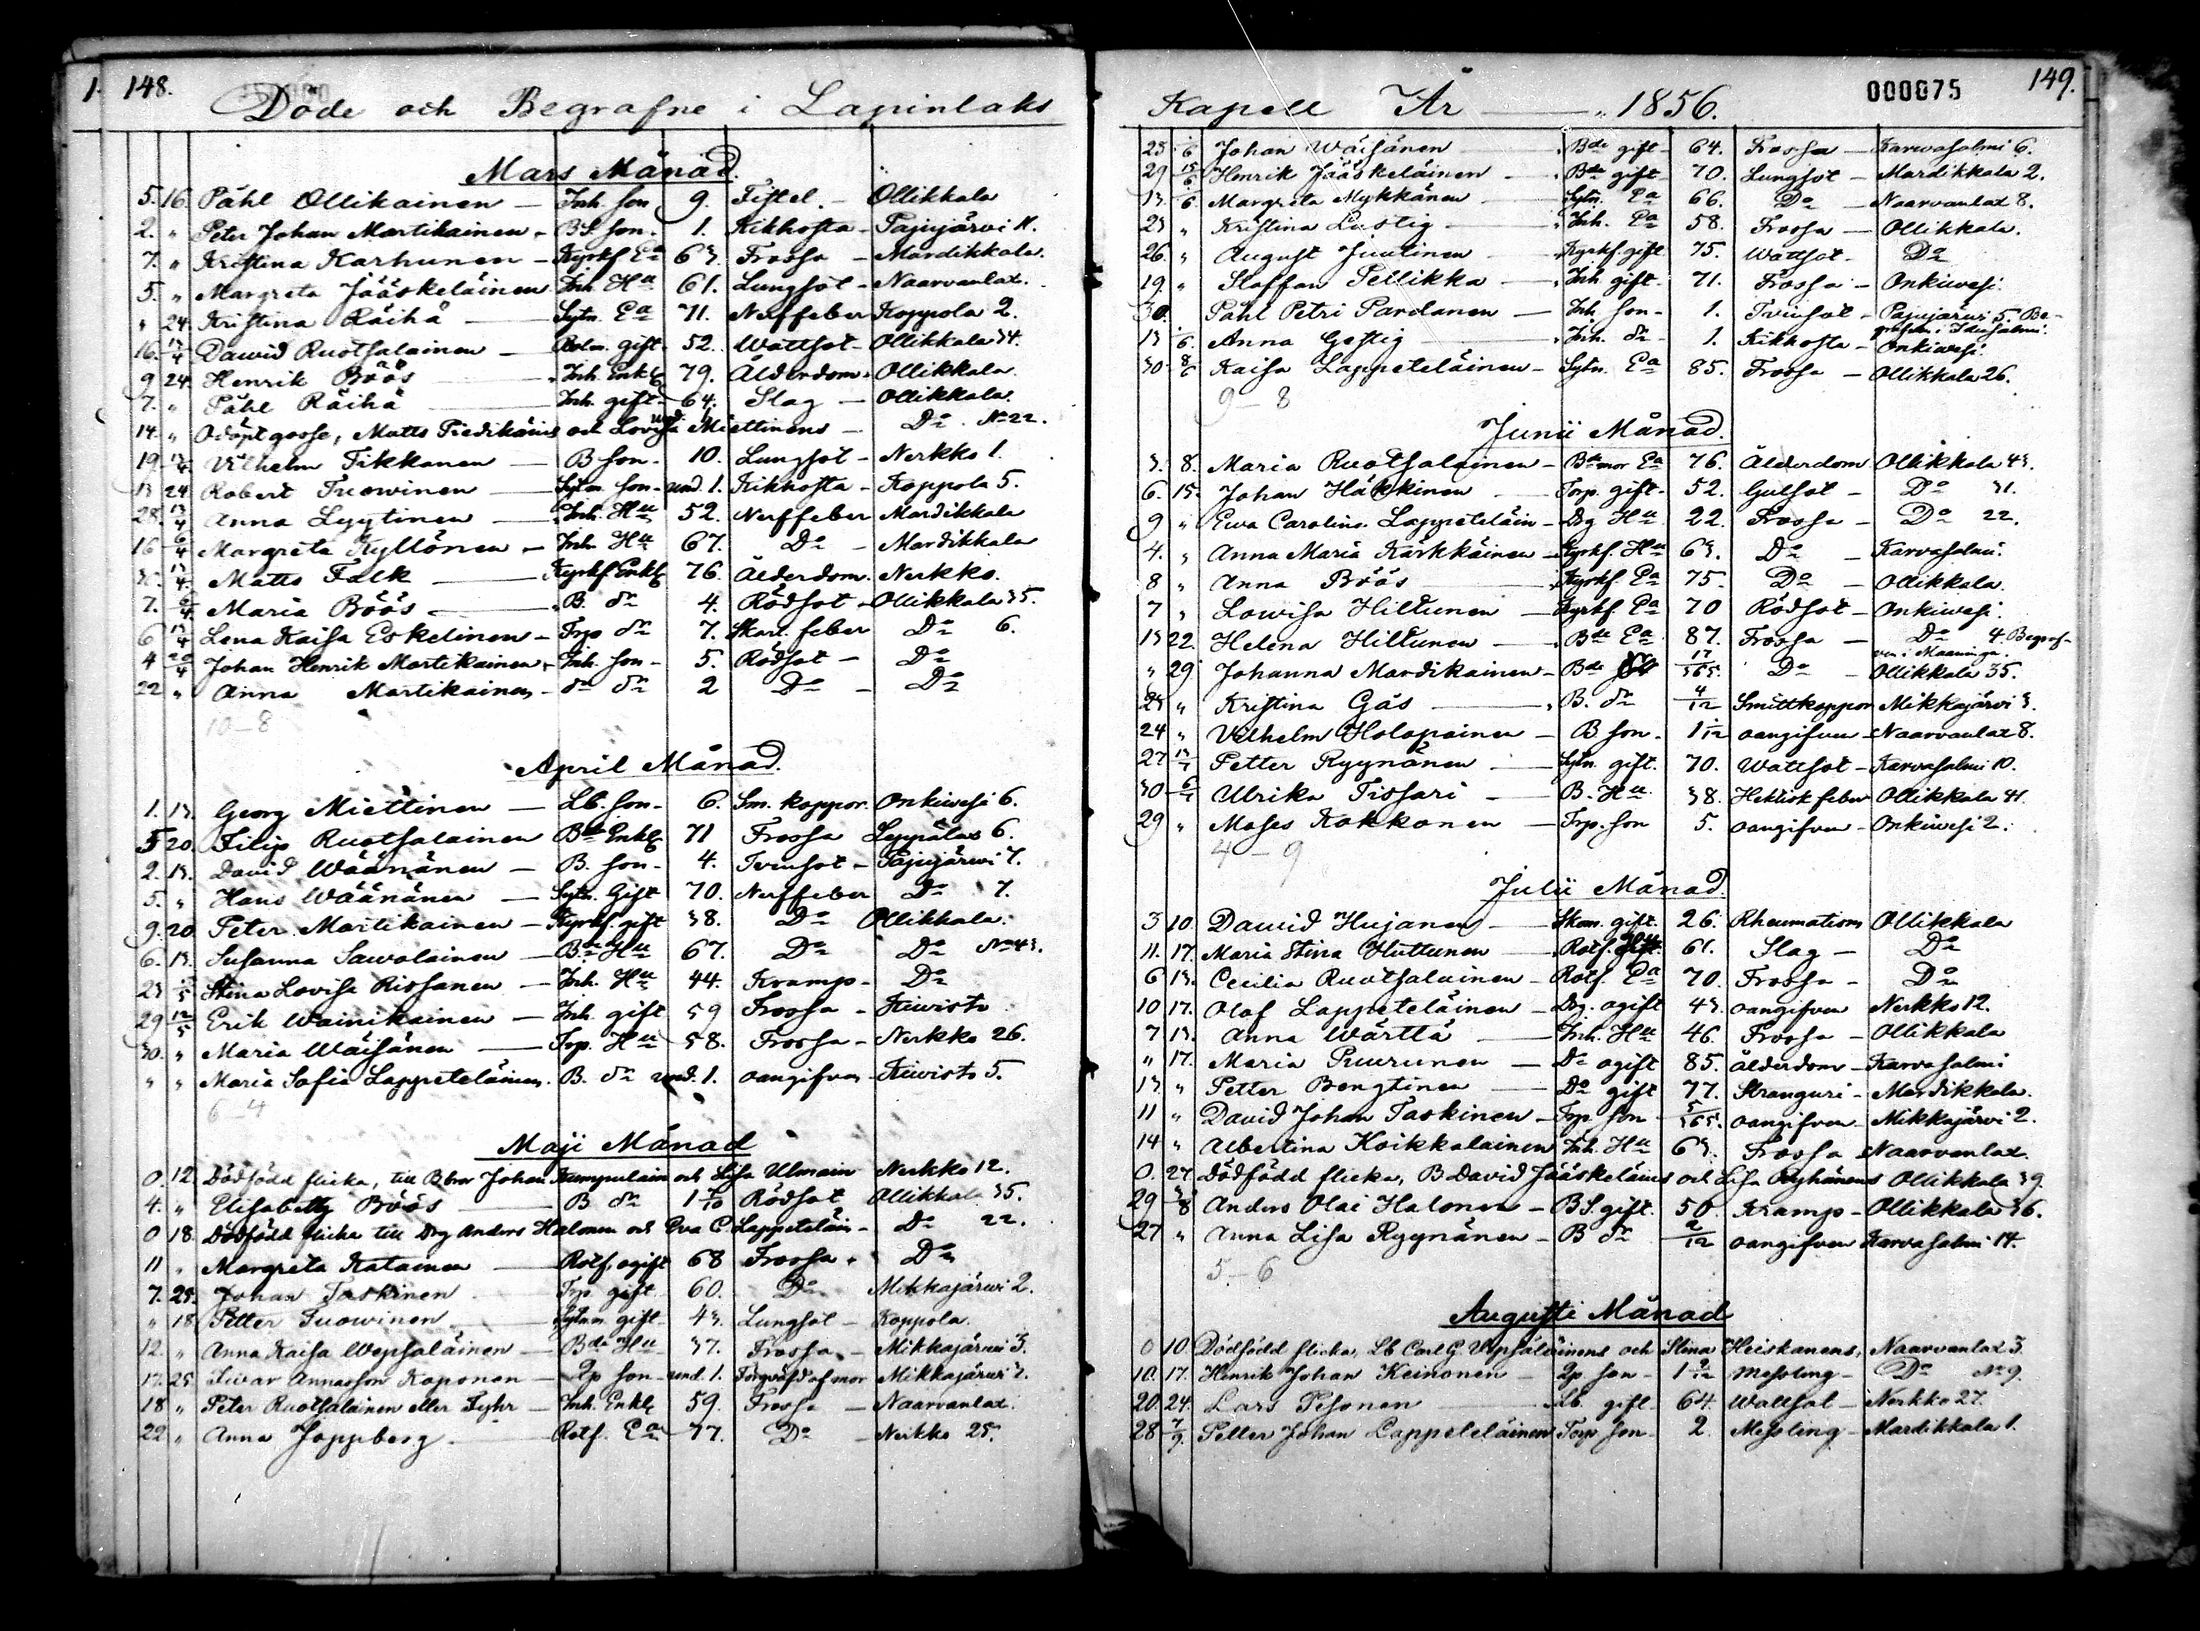 148.
Döde och Begrafne i Lapinlaks
Mars Månad.
5. 16. Påhl Ollikainen — Inh. son 9. Fistel. — Ollikkala
2. " Peter Johan Martikainen - BS. son - 1. Kikhosta - Pajujärvi 11.
7. " Kristina Karhunen — Kyrkf. Ea 63. Frossa — Mardikkala.
5. " Margreta Jääskeläinen Inh. Hu 61. Lungsot - Naarvanlax.
" 24. Kristina Räihä — Sytn. Ea 71. Nerffeber Koppola 2.
16. 13/4 Dawid Ruotsalainen — Bolm. gift 52. Wattsot - Ollikkala 34.
9 24. Henrik Böös — Inh. Enkl. 79. Ålderdom - Ollikkala
7. " Påhl Räihä — Inh. gift 64. Slag — Ollikkala
14. " Odöpt gosse, Matts Fredikäins och Lovisa Miettinens — und. 1. Do No 22.
19 13/4 Vilhelm Tikkanen — B son - 10. Lungsot - Nerkko 1.
13 24 Robert Tuowinen — Sytn. son - und. 1. Kikhosta - Koppola 5.
28. 13/4 Anna Lyytinen — Inh. Hu 52. Nerffeber Mardikkala
16 6/4 Margreta Kyllönen - Inh. Hu 67. Do — Mardikkala
30. 13/4 Matts Falk — Kyrkf. Enkl. 76. Ålderdom. Nerkko.
7. 6/4 Maria Böös — B. dr 4. Rödsot - Ollikkala 35.
6 13/4 Lena Kaisa Eskelinen - Trp dr 7. Skarl. feber Do 6.
4 20/4 Johan Henrik Martikainen - Inh. son - 5. Rödsot — Do
22 " Anna Martikainen - dr dr 2 Do — Do
10—8
April Månad.
1. 13. Georg Miettinen — Lb. son - 6. Sm. koppor. Onkiwesi 6.
5 20. Filip Ruotsalainen Bde Enkl 71 Frossa Lappälax 6.
2. 13. David Wäänänen — B. son - 4. Tvinsot - Pajujärwi 7.
5. " Hans Wäänänen — Sytn. Gift 70. Nerffeber Do 7.
9. 20 Peter Martikainen - Kyrkf. gift 38. Do Ollikkala.
6. 13. Susanna Sawolainen - Bde Hu 67. Do Do No 43.
23 /5 Stina Lovisa Rissanen — Inh. Hu 44. Kramp - Do
29 12/5 Erik Wainikainen — Inh. gift 59 Frossa - Kiwisto
30. " Maria Wäisänen — Trp. Hu 58. Frossa - Nerkko 26.
" " Maria Sofia Lappeteläinen. B. dr und. 1. oangifven - Kiwisto 5.
6—4
Maji Månad
0. 12. Dödfödd flicka, till Bbror Johan Kumpulain och Lisa Ulmain Nerkko 12.
4. " Elisabeth Böös — B dr 1 /10 Rödsot Ollikkala 35.
0 18. Dödfödd flicka till Drg Anders Halonen och Eva C. Lappeteläin - Do 22.
11 " Margreta Katainen — Rotf. ogift 68 Frossa - Do
7. 25. Johan Taskinen - Trp gift 60. Do Mikkajärwi 2.
" 18 Petter Tuowinen — Sytn. gift 43. Lungsot - Koppola.
12. " Anna Kaisa Wepsäläinen — Bde Hu 37. Frossa - Mikkajärwi 3.
12. 25 Iwar Annasson Kaponen — Pp son - und. 1. af mor Mikkajärwi 7.
18 " Peter Ruotsalainen eller Fyhr - Inh. Enkl 59. Frossa — Naarvanlax.
22. " Anna Joppberg — Rotf. Ea 77. Do — Nerkko 25.
149.
000075
Kapell År — " 1856.
23 /6 Johan Wäisänen — Bde gift - 64. Frossa — Karvasalmi 6.
29 15/6 Henrik Jääskeläinen — Bde gift - 70. Lungsot - Mardikkala 2.
13. /6 Margreta Mykkänen — Sytn. Ea 66. Do — Naarvanlax 8.
23 " Kristina Lustig — Inh. Ea 58. Frossa — Ollikkala.
26. " August Juutinen — Kyrkf. gift 75. Wattsot - Do
19 " Staffan Pellikka — Inh. gift - 71. Frossa - Onkiwesi.
30. Påhl Petri Pardanen — Inh son - 1. Tvinsot - Pajujärwi 5. Be-
grafven i Idensalmi.
13 /6 Anna Gestig — Inh. dr 1. Kikhosta - Onkiwesi.
30 8/6 Kaisa Lappeteläinen - Sytn. Ea 85. Frossa — Ollikkala 26.
9—8
Junii Månad.
3. 8. Maria Ruotsalainen - Bde mor Ea 76. Ålderdom Ollikkala 43.
6. 15. Johan Häkkinen — Torp. gift - 52. Gulsot — Do 31.
9 " Ewa Carolina Lappeteläin - Drg Hu 22. Frossa — Do 22.
4. " Anna Maria Kärkkäinen - Kyrkf. Hu 63. Do — Karvasalmi.
8 " Anna Böös — Kyrkf. Ea 75. Do — Ollikkala.
7 " Lowisa Hiltunen — Kyrkf. Ea 70 Rödsot - Onkiwesi.
13 22. Helena Hiltunen — Bde Ea 87. Frossa — Do 4. Begraf-
ven i Maaninga.
" 29 Johanna Mardikainen - Bde 17/365. Do — Ollikkala 35.
23 " Kristina Gås — B. dr 4/12 Smittkoppor Mikkajärvi 3.
24 " Vilhelm Holopainen — B son. 1 /12 oangifven - Naarvanlax 8.
27 13/7 Petter Ryynänen — Sytn. gift. 70. Wattsot - Karvasalmi 10.
30 6/7 Ulrika Tissari — B. Hu 38. Hektisk feber Ollikkala 41.
29 " Moses Kokkonen — Trp. son 5. oangifven - Onkiwesi 2.
4—9
Julii Månad.
3 10. Dawid Hujanen — Skom. gift. 26. Rheumatism Ollikkala
11. 17. Maria Stina Huttunen — Rotf. Hu 61. Slag — Do
6 13. Cecilia Ruotsalainen - Rotf. Ea 70. Frossa - Do
10 17. Olof Lappeteläinen - Drg. ogift 43. oangifven Nerkko 12.
7 13. Anna Wärttä — Inh. Hu 46. Frossa - Ollikkala
" 17. Maria Puurunen — Do ogift 85. ålderdom - Karvasalmi
13 " Petter Bengtinen — Do gift 77. Stranguri - Mardikkala.
11 " David Johan Taskinen - Trp son - 5/365. oangifven - Mikkajärvi 2.
14 " Albertina Koikkalainen Inh. Hu 63. Frossa Naarvanlax.
0. 27. Dödfödd flicka, B David Jääskeläins och Lisa Ryhänens Ollikkala 39.
29 3/8 Anders Olai Halonen - BS. gift. 50. Kramp - Ollikkala 36.
27 " Anna Lisa Ryynänen - B dr 2/12 oangifven Karvasalmi 14.
5—6
Augusti Månad
0 10. Dödfödd flicka, Lb Carl G. Wepsäläinens och Stina Heiskanens, Naarvanlax 3.
10. 17. Henrik Johan Keinonen — Pp son - 1 2/12 Messling - Do No 9.
20. 24. Lars Pesonen — Lb. gift - 64. Wattsot — Nerkko 27.
28 7/9. Petter Johan Lappeteläinen Torp son - 2. Messling - Mardikkala 1.